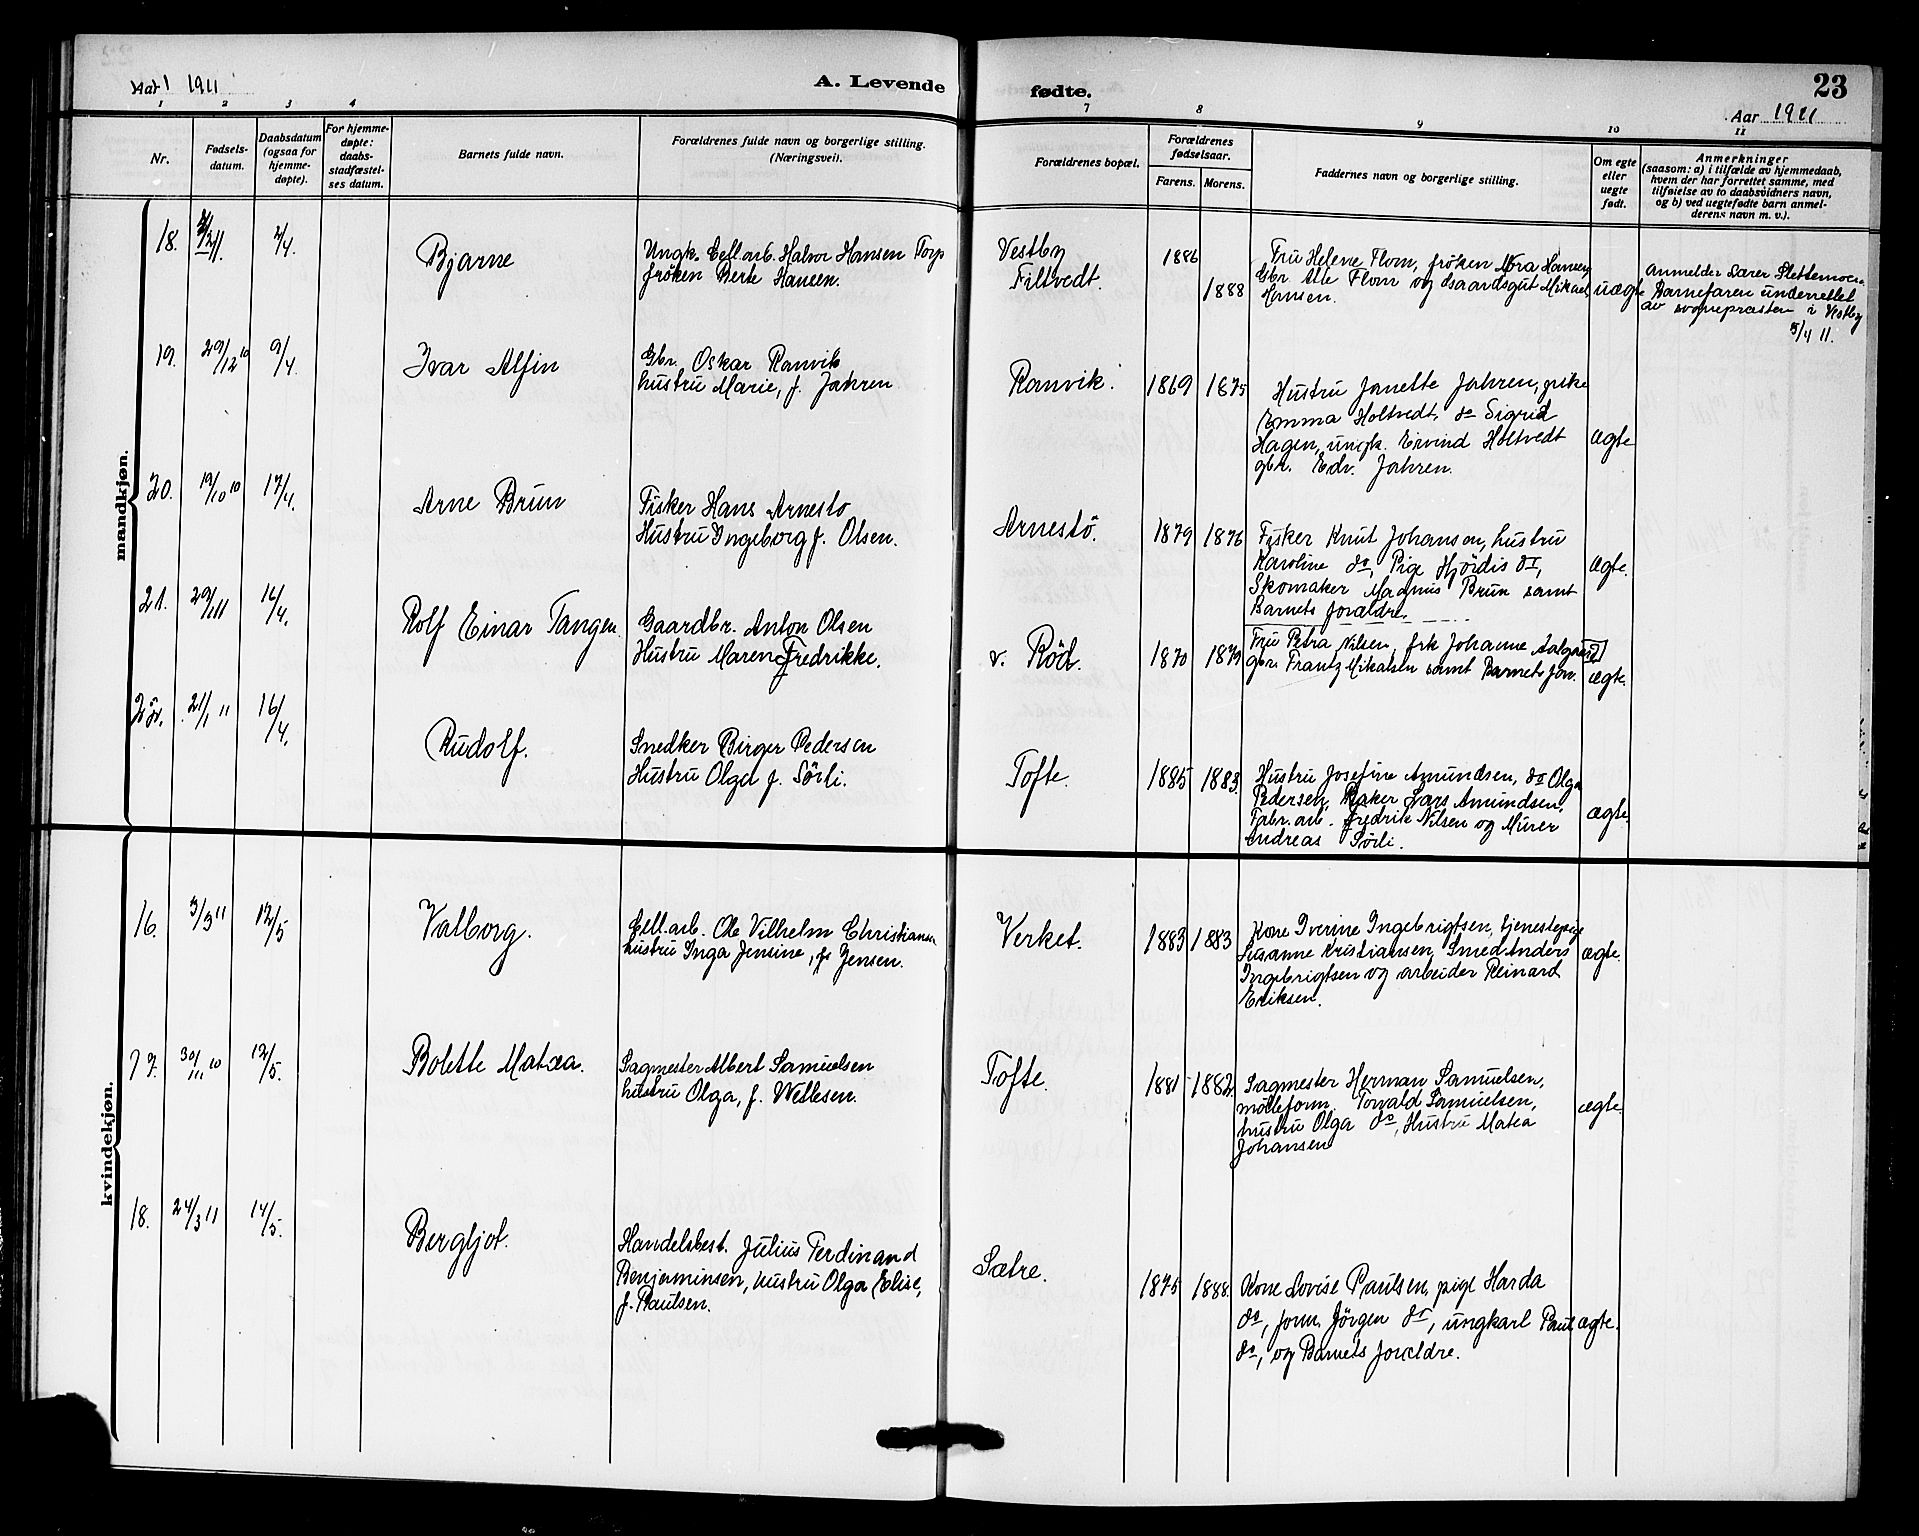 Aar 1911
A. Levende
fødte.
23
Aar 1911
1 2 3 4
7 8 9 10 11
Nr.
Fødsels-
datum.
Daabsdatum
(ogsaa for
hjemme-
døpte).
For hjemme-
døpte:
daabs-
stadfæstel-
ses datum.
Barnets fulde navn.
Forældrenes fulde navn og borgerlige stilling.
(Næringsvei).
Forældrenes bopæl.
Forældrenes
fødselsaar.
Farens. Morens.
Faddernes navn og borgerlige stilling.
Om egte
eller
uegte
født.
Anmerkninger
(saasom: a) i tilfælde av hjemmedaab,
hvem der har forrettet samme, med
tilføielse av to daabsvidners navn,
og b) ved uegtefødte barn anmel-
derens navn m. v.).
mandkjøn.
18. /2 11. 2/4. Bjarne
Ungk. Cell.arb. Halvor Hansen Torp
frøken Berte Hansen.
Vestby
Filtvedt.
1886
1888
Fru Helene Flom, frøken Nora Hansen
Gbr. Atle Flom og Gaardsgut Mikael
Hansen.
uægte
Anmelder Lærer Slettemoen
Barnefaren underrettet
av sogneprästen i Vestby
5/4 11.
19. 29/12 10 9/4. Ivar Alfin
Gbr. Oskar Ranvik
hustru Marie, f. Jahren
Ranvik.
1869 1875
Hustru Janette Jahren, pike
Emma Holtvedt, do Sigrid
Hagen, ungk. Eivind Holtvedt
gbr. Edv. Jahren.
ægte
20. 19/10 10 17/4. Arne Brun
Fisker Hans Arnestø
Hustru Ingeborg f. Olsen.
Arnestö.
1879 1876
Fisker Knut Johansen, hustru
Karoline do, Pige Hjördis do,
Skomaker Magnus Brun samt
Barnets forældre.
ægte.
21. 29/1 11 16/4. Rolf Einar Tangen
Gaardbr. Anton Olsen
Hustru Maren Fredrikke.
v. Röd.
1870 1879
Fru Petra Nilsen, frk Johanne Aalgaard
gbr. Frantz Mikalsen samt Barnets for.
ægte.
22. 21/1 11 16/4. Rudolf.
Snedker Birger Pedersen
Hustru Olga f. Sörli.
Tofte.
1885 1883
Hustru Josefine Amundsen, do Olga
Pedersen, Baker Lars Amundsen,
Fabr. arb. Fredrik Nilsen og Murer
Andreas Sörli.
ægte
kvindekjøn.
16. 3/3 11 12/5 Valborg.
Cell.arb. Ole Vilhelm Christiansen
hustru Inga Jensine, f. Jensen.
Verket.
1883 1883
Kone Iverine Ingebrigtsen, tjenestepige
Susanne Kristiansen, Smed Anders
Ingebrigtsen og arbeider Reinard
Eriksen.
ægte.
17. 30/11 10 12/5. Bolette Matæa.
Sagmester Albert Samuelsen
hustru Olga, f. Wetlesen.
Tofte.
1881 1882
Sagmester Herman Samuelsen,
mölleform. Torvald Samuelsen,
hustru Olga do, Hustru Matea
Johansen
ægte
18. 24/3 11 14/5. Bergljot.
Handelsbest. Julius Ferdinand
Benjaminsen, hustru Olga Elise,
f. Paulsen.
Sætre.
1875 1888.
Kone Lovise Paulsen, pige Harda
do, form. Jörgen do, ungkarl Paul
do, og Barnets forældre.
ægte.